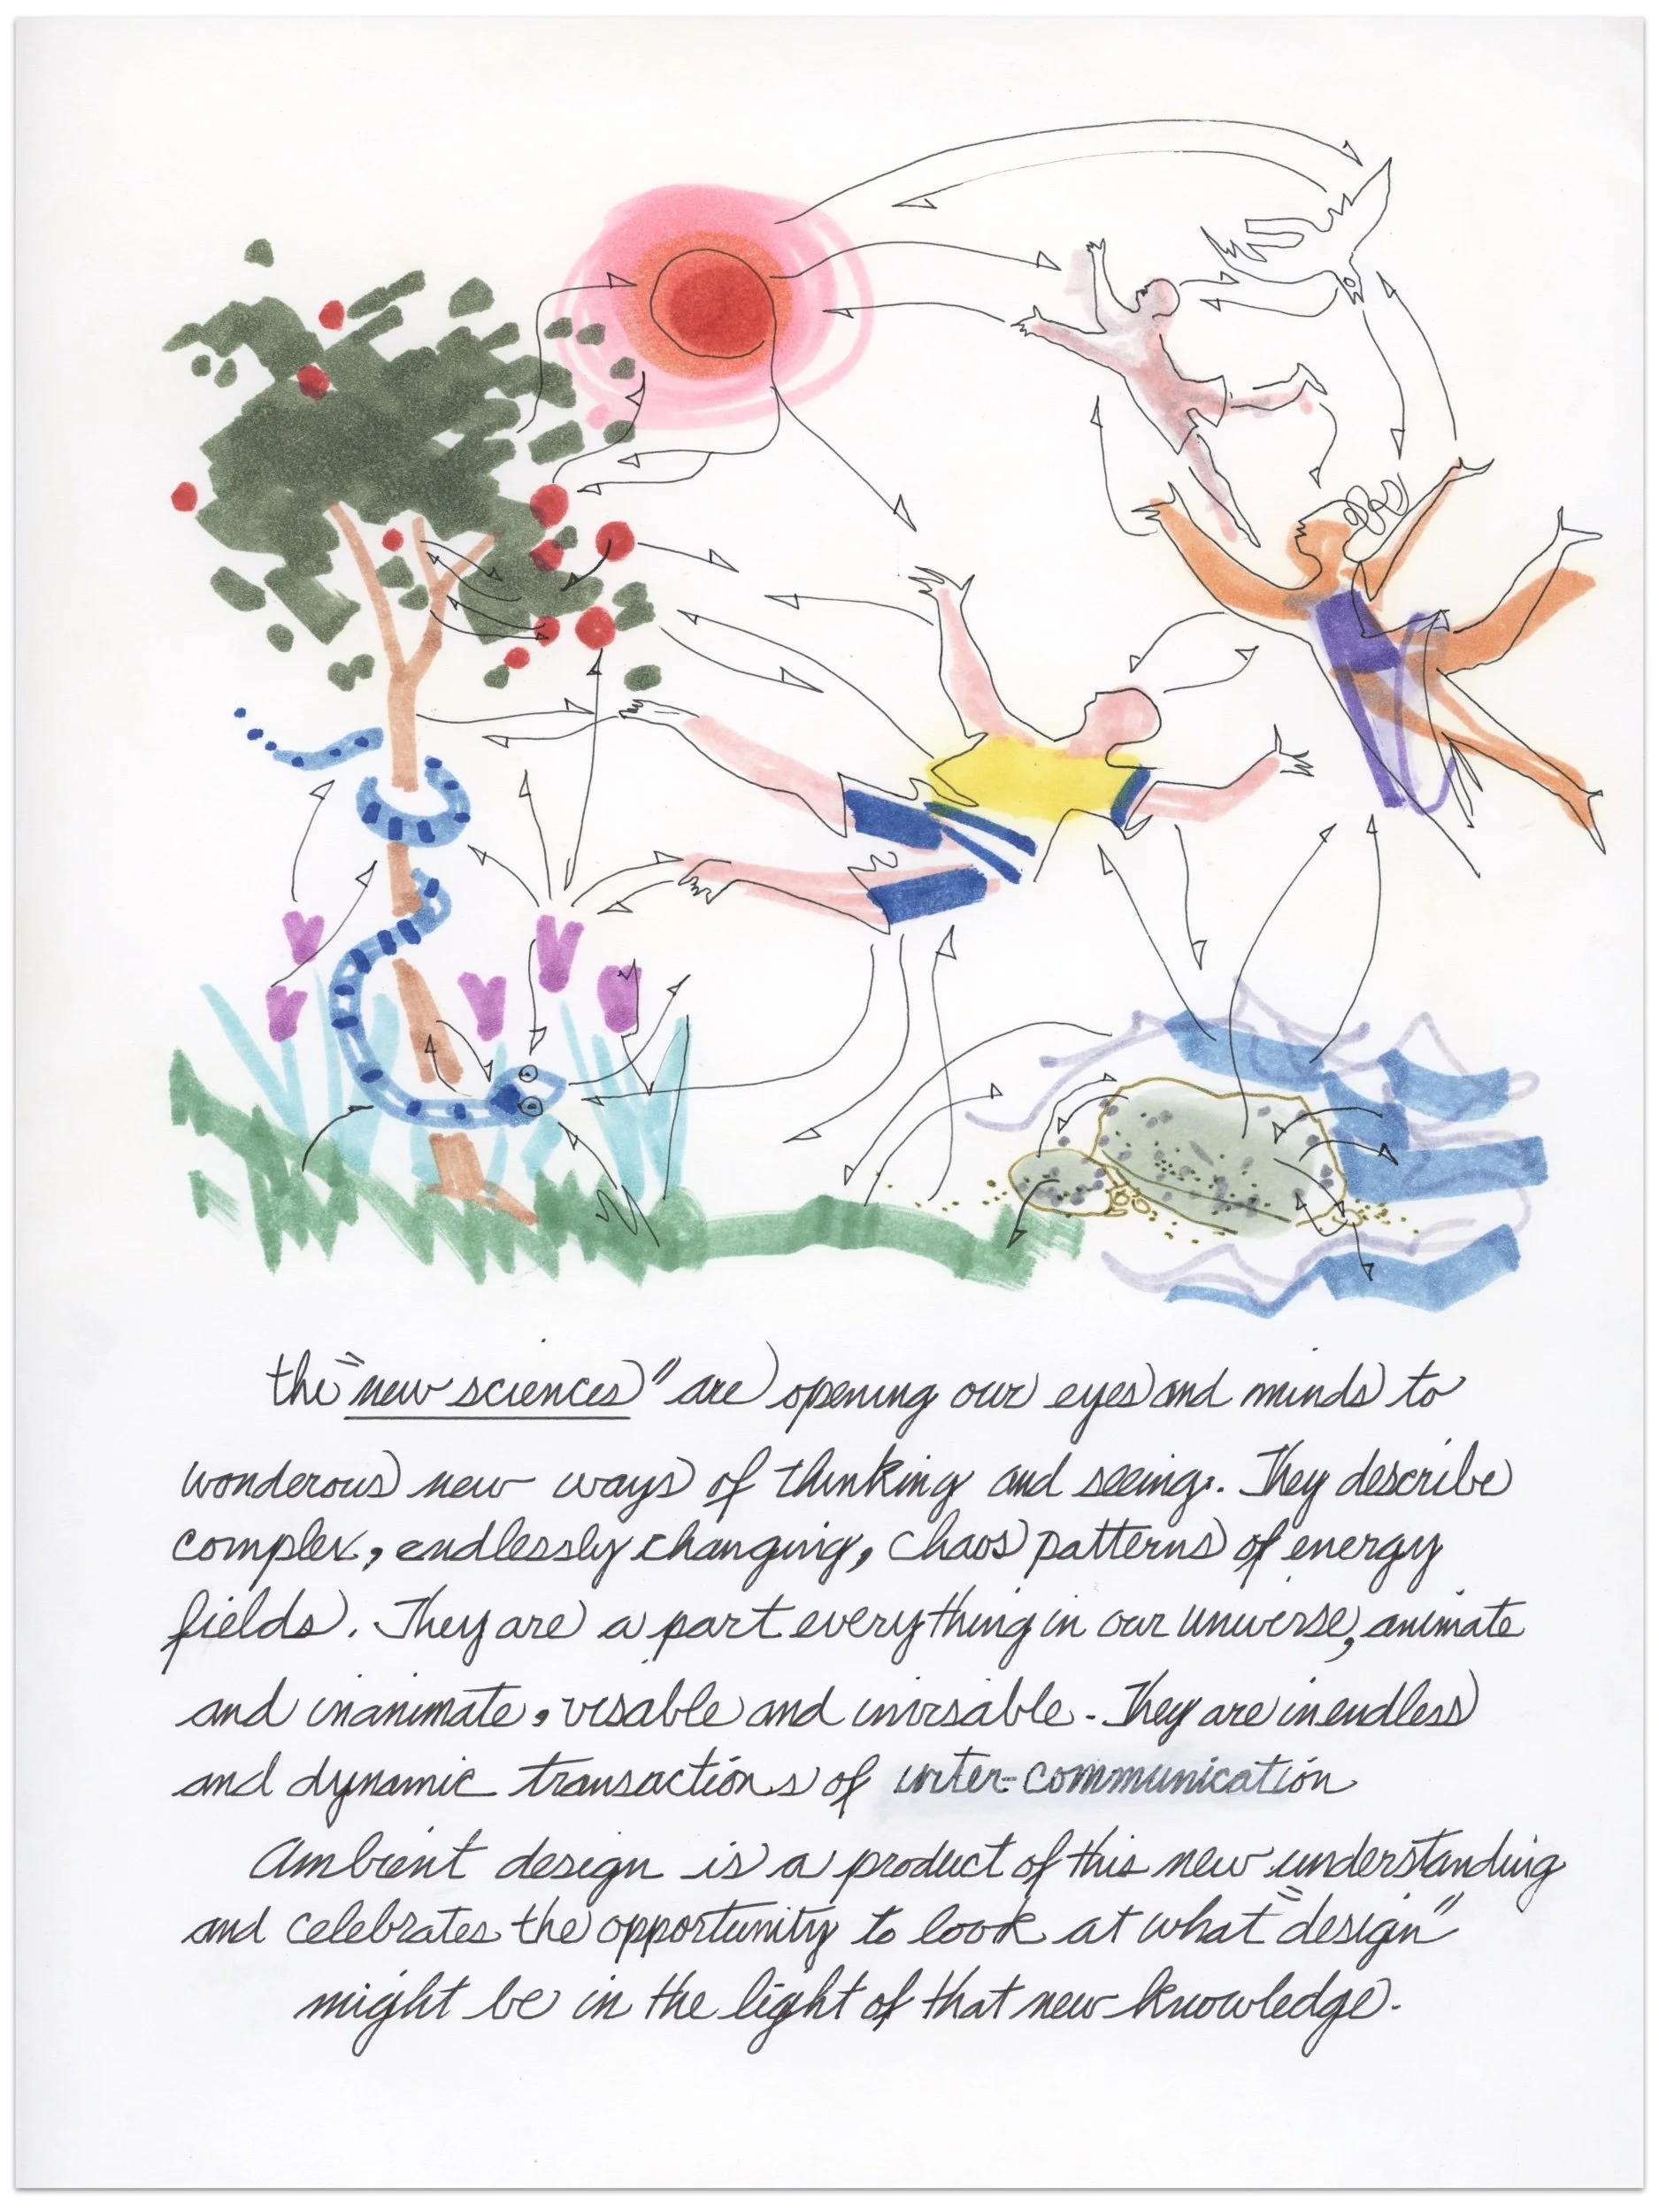 the "new sciences" are opening our eyes and minds to
wonderous new ways of thinking and seeing. They describe
complex, endlessly changing, chaos patterns of energy
fields. They are a part everything in our universe, animate
and inanimate, visable and invisable. They are in endless
and dynamic transactions of inter-communication
Ambient design is a product of this new understanding
and celebrates the opportunity to look at what "design"
might be in the light of that new knowledge.